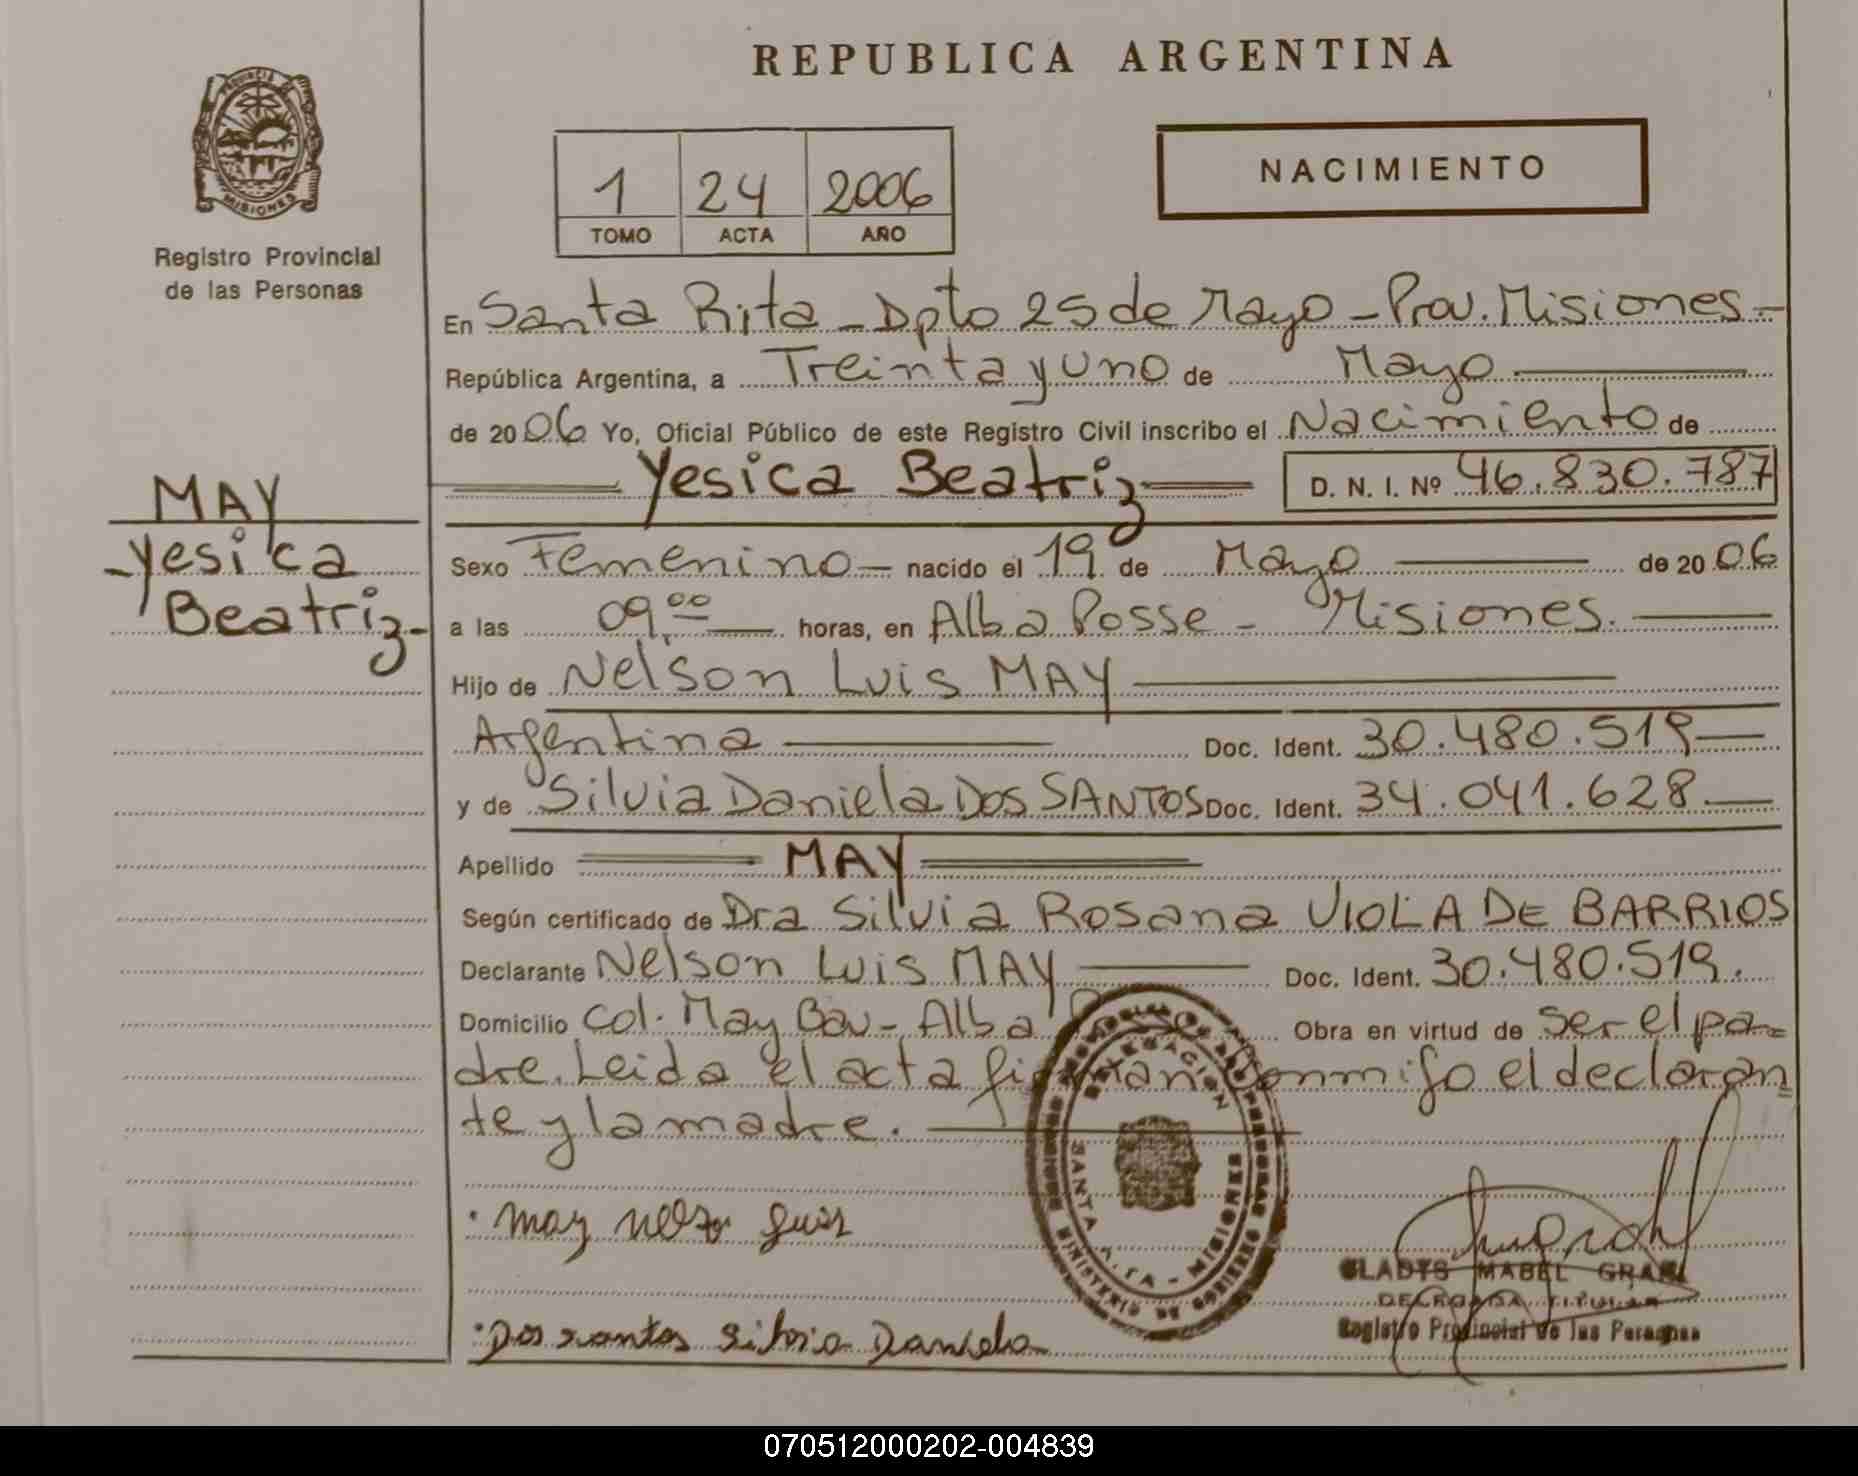 REPUBLICA ARGENTINA
PROVINCIA DE
MISIONES
Registro Provincial
de las Personas
1 24 2006
TOMO ACTA AÑO
NACIMIENTO
En Santa Rita - Dpto 25 de Mayo - Prov. Misiones -
República Argentina, a Treinta y Uno de Mayo
de 2006 Yo, Oficial Público de este Registro Civil inscribo el Nacimiento de
Yesica Beatriz D. N. I. Nº 46.830.787
MAY
Yesica
Beatriz-
Sexo Femenino - nacido el 19 de Mayo de 2006
a las 09,00 horas, en Alba Posse - Misiones.
Hijo de Nelson Luis MAY
Argentina Doc. Ident. 30.480.519
y de Silvia Daniela Dos SANTOS Doc. Ident. 34.041.628
Apellido MAY
Según certificado de Dra Silvia Rosana VIOLA DE BARRIOS
Declarante Nelson Luis MAY Doc. Ident. 30.480.519.
Domicilio Col. May Bav - Alba Obra en virtud de ser el pa=
dre. Leida el acta firman conmigo el declaran=
te y la madre.
DELEGACION
SANTA RITA - MISIONES
may nelson luis
Dos santos Silvia Daniela
GLADYS MABEL
DELEGADA TITULAR
Registro Provincial de las Personas
070512000202-004839